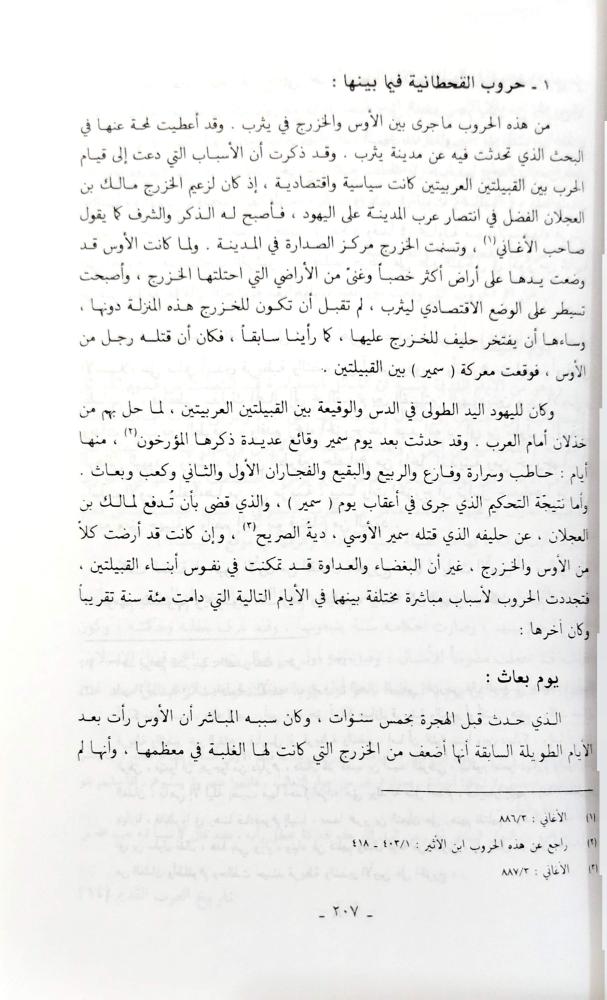 ١ ـ حروب القحطانية فيما بينها :
من هذه الحروب ماجرى بين الأوس والخزرج في يثرب . وقد أعطيت لمحة عنها في
البحث الذي تحدثت فيه عن مدينة يثرب . وقد ذكرت أن الأسباب التي دعت إلى قيام
الحرب بين القبيلتين العربيتين كانت سياسية واقتصادية ، إذ كان لزعيم الخزرج مالك بن
العجلان الفضل في انتصار عرب المدينة على اليهود ، فأصبح له الذكر والشرف كما يقول
صاحب الأغاني(١) ، وتسنمت الخزرج مركز الصدارة في المدينة . ولما كانت الأوس قد
وضعت يدها على أراض أكثر خصباً وغنىً من الأراضي التي احتلتها الخزرج ، وأصبحت
تسيطر على الوضع الاقتصادي ليثرب ، لم تقبل أن تكون للخزرج هذه المنزلة دونها ،
وساءها أن يفتخر حليف للخزرج عليها ، كما رأينا سابقاً ، فكان أن قتله رجل من
الأوس ، فوقعت معركة ( سمير ) بين القبيلتين .
وكان لليهود اليد الطولى في الدس والوقيعة بين القبيلتين العربيتين ، لما حل بهم من
خذلان أمام العرب . وقد حدثت بعد يوم سمير وقائع عديدة ذكرها المؤرخون(٢) ، منها
أيام : حاطب وسرارة وفازع والربيع والبقيع والفجاران الأول والثاني وكعب وبعاث .
وأما نتيجة التحكيم الذي جرى في أعقاب يوم ( سمير ) ، والذي قضى بأن تُدفع لمالك بن
العجلان ، عن حليفه الذي قتله سمير الأوسي ، ديةُ الصريح(٣) ، وإن كانت قد أرضت كلاً
من الأوس والخزرج ، غير أن البغضاء والعداوة قد تمكنت في نفوس أبناء القبيلتين ،
فتجددت الحروب لأسباب مباشرة مختلفة بينها في الأيام التالية التي دامت مئة سنة تقريباً
وكان آخرها :
يوم بعاث :
الذي حدث قبل الهجرة بخمس سنوات ، وكان سببه المباشر أن الأوس رأت بعد
الأيام الطويلة السابقة أنها أضعف من الخزرج التي كانت لها الغلبة في معظمها ، وأنها لم
(١) الأغاني : ٨٨٦/٣
(٢) راجع عن هذه الحروب ابن الأثير : ٤٠٢/١ ـ ٤١٨
(٣) الأغاني : ٨٨٧/٣
ـ ٢٠٧ ـ